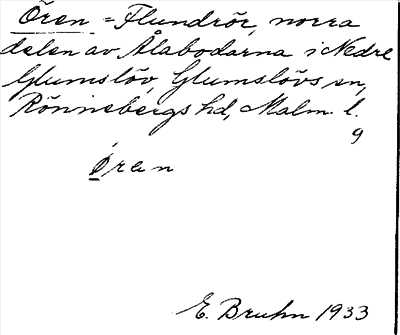 Ören = Flundrör, norra
delen av Ålabodarna i Nedre
Glumslöv, Glumslövs sn,
Rönnebergs hd, Malm. l.
9
Öran
E. Bruhn 1933